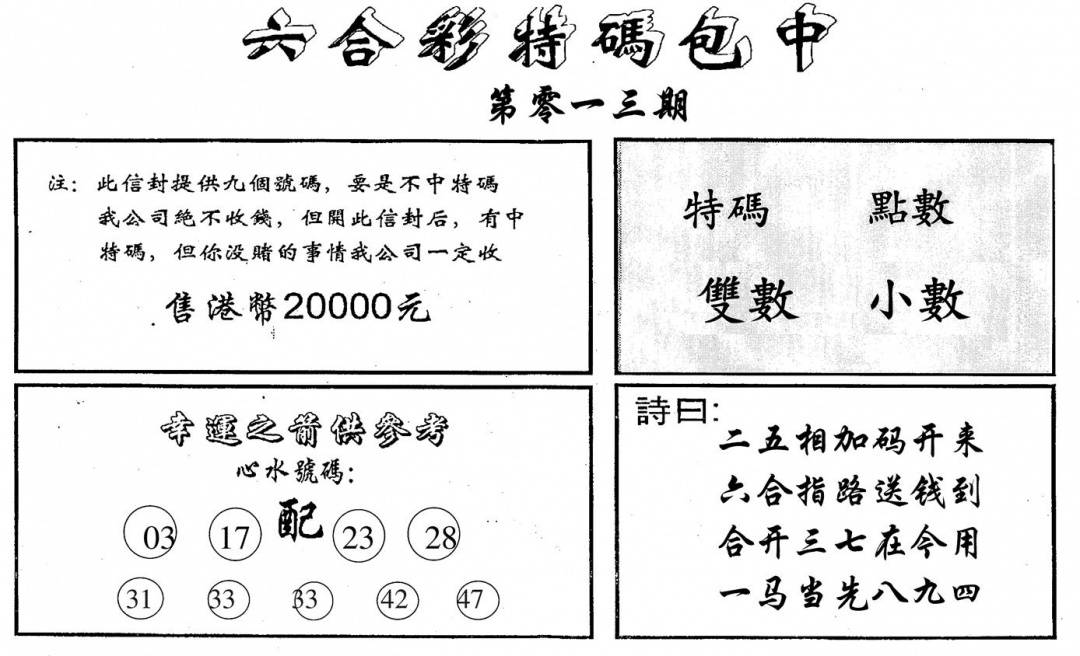 六合彩特碼包中
第零一三期
注：此信封提供九個號碼，要是不中特碼
我公司絕不收錢，但開此信封后，有中
特碼，但你没賭的事情我公司一定收
售港幣20000元
特碼 點數
雙數 小數
幸運之箭供參考
心水號碼：
03 17 配 23 28
31 33 33 42 47
詩曰：
二五相加码开来
六合指路送钱到
合开三七在今用
一马当先八九四